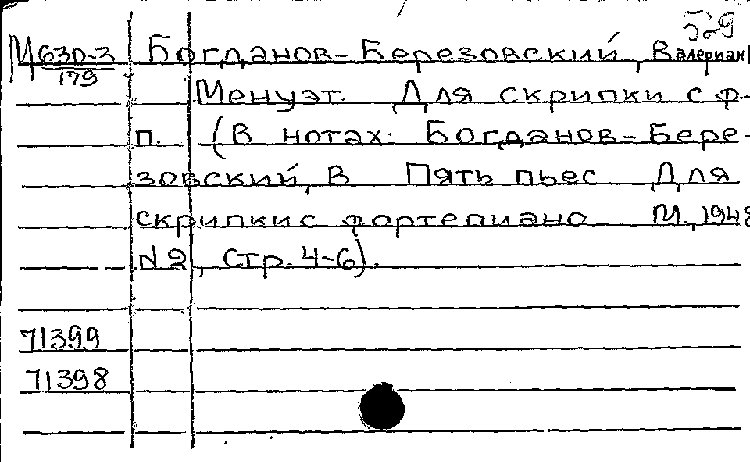 529
М630-3 Богданов-Березовский, Валериан
179
Менуэт. Для скрипки с ф-
п. (В нотах: Богданов-Бере-
зовский, В. Пять пьес. Для
скрипки с фортепиано. М., 1948
N2, стр. 4-6).
71399
71398